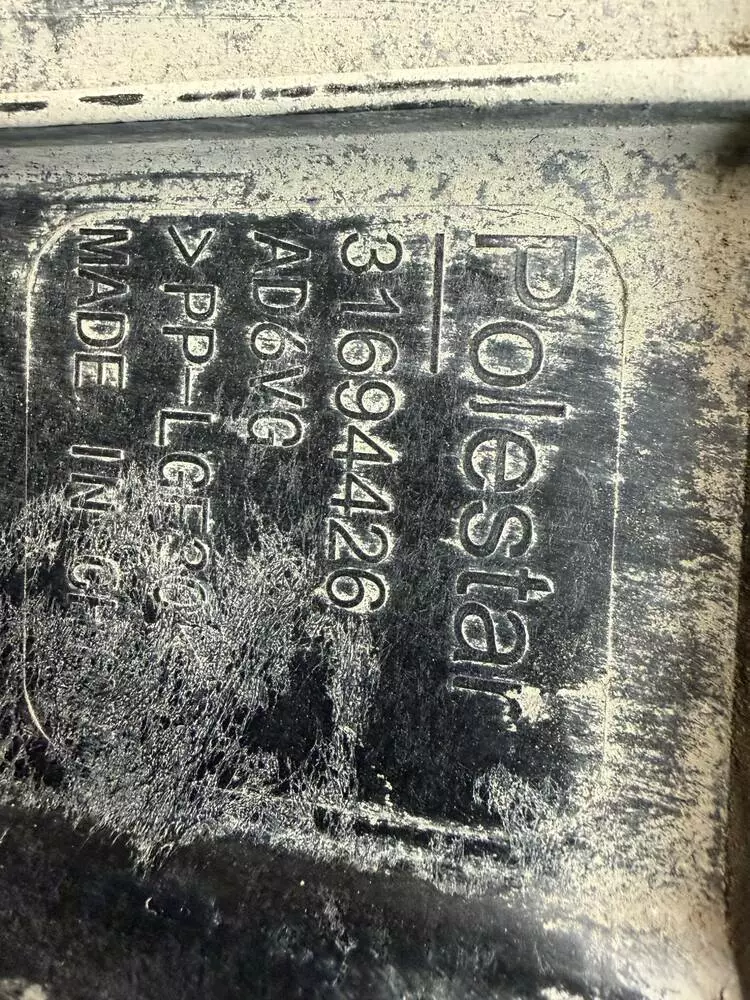 Polestar
31694426
AD6VG
>PP-LGF30
MADE IN